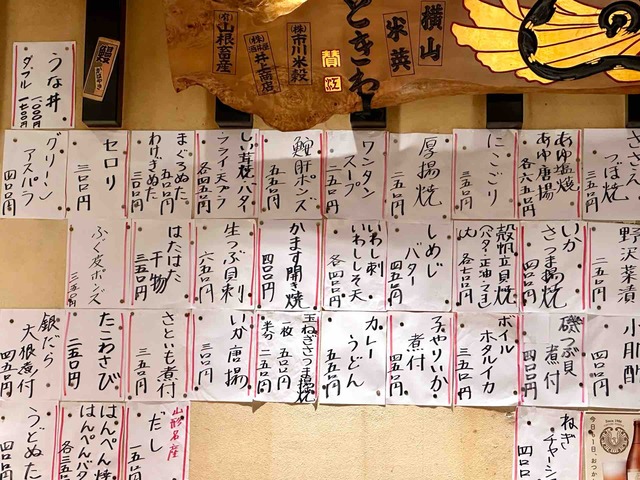 横山
米英
ときわ
賛江
(株)市川米穀
(株)酒類 井上商店
(有)山根畜産
さざえ
つぼ焼
あゆ塩焼
あゆ唐揚
各六五〇円
にこごり
三五〇円
厚揚焼
二五〇円
ワンタン
スープ
二五〇円
鮟肝ポンズ
五五〇円
しいたけ焼・バター
フライ・天プラ
各四五〇円
まぐろぬた
五五〇円
わけぎぬた
三〇〇円
セロリ
三〇〇円
グリーン
アスパラ
四〇〇円
うな丼
ダブル
野沢菜漬
二五〇円
いか
さつま揚焼
四〇〇円
殻帆立貝焼
しめじ
バター
四五〇円
いわし刺
いわししそ天
各四〇〇円
かます開き焼
四〇〇円
生つぶ貝刺
六五〇円
はたはた
干物
三五〇円
ふぐ皮ポンズ
三五〇円
小肌酢
四〇〇円
磯つぶ貝
煮付
四〇〇円
ボイル
ホタルイカ
三五〇円
子やりいか
煮付
四五〇円
カレー
うどん
五五〇円
玉ねぎさつま揚焼
一枚 五〇〇円
半分 二五〇円
いか唐揚
三〇〇円
さといも煮付
三五〇円
たこわさび
二五〇円
銀だら
大根煮付
四五〇円
ねぎ
チャーシュー
四〇〇
山形名産
だし
一五〇
はんぺん焼
はんぺんバター
各三五〇
うどぬた
四〇〇